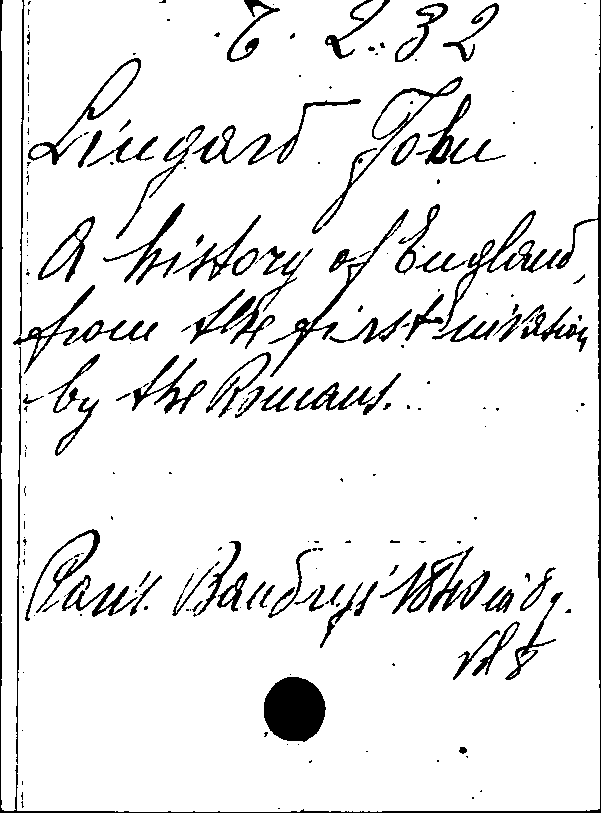 7. 2. 32
Lingard John
A history of England,
from the first invasion
by the Romans.
Paris. Baudry's 1840 in 8°.
Vol 8